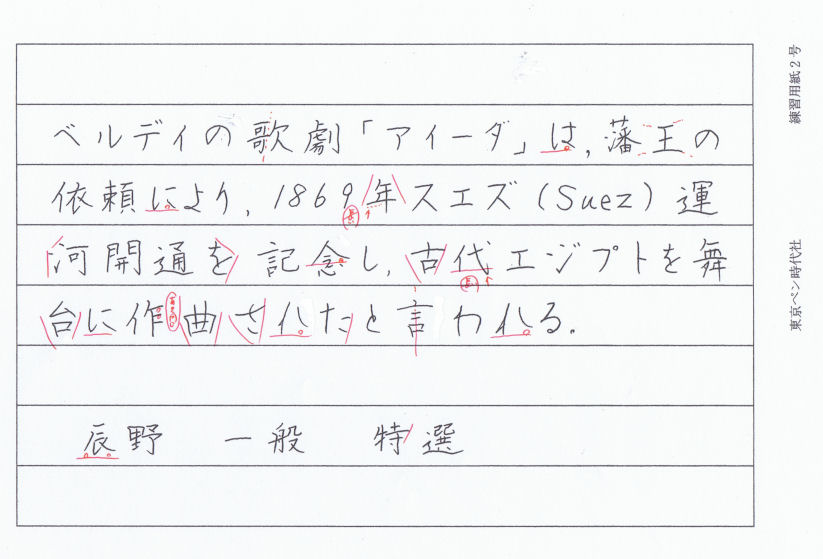 ベルディの歌劇「アイーダ」は,藩王の
依頼により,1869年スエズ(Suez)運
河開通を記念し,古代エジプトを舞
台に作曲されたと言われる.
辰野 一般 特選
練習用紙2号
東京ペン時代社